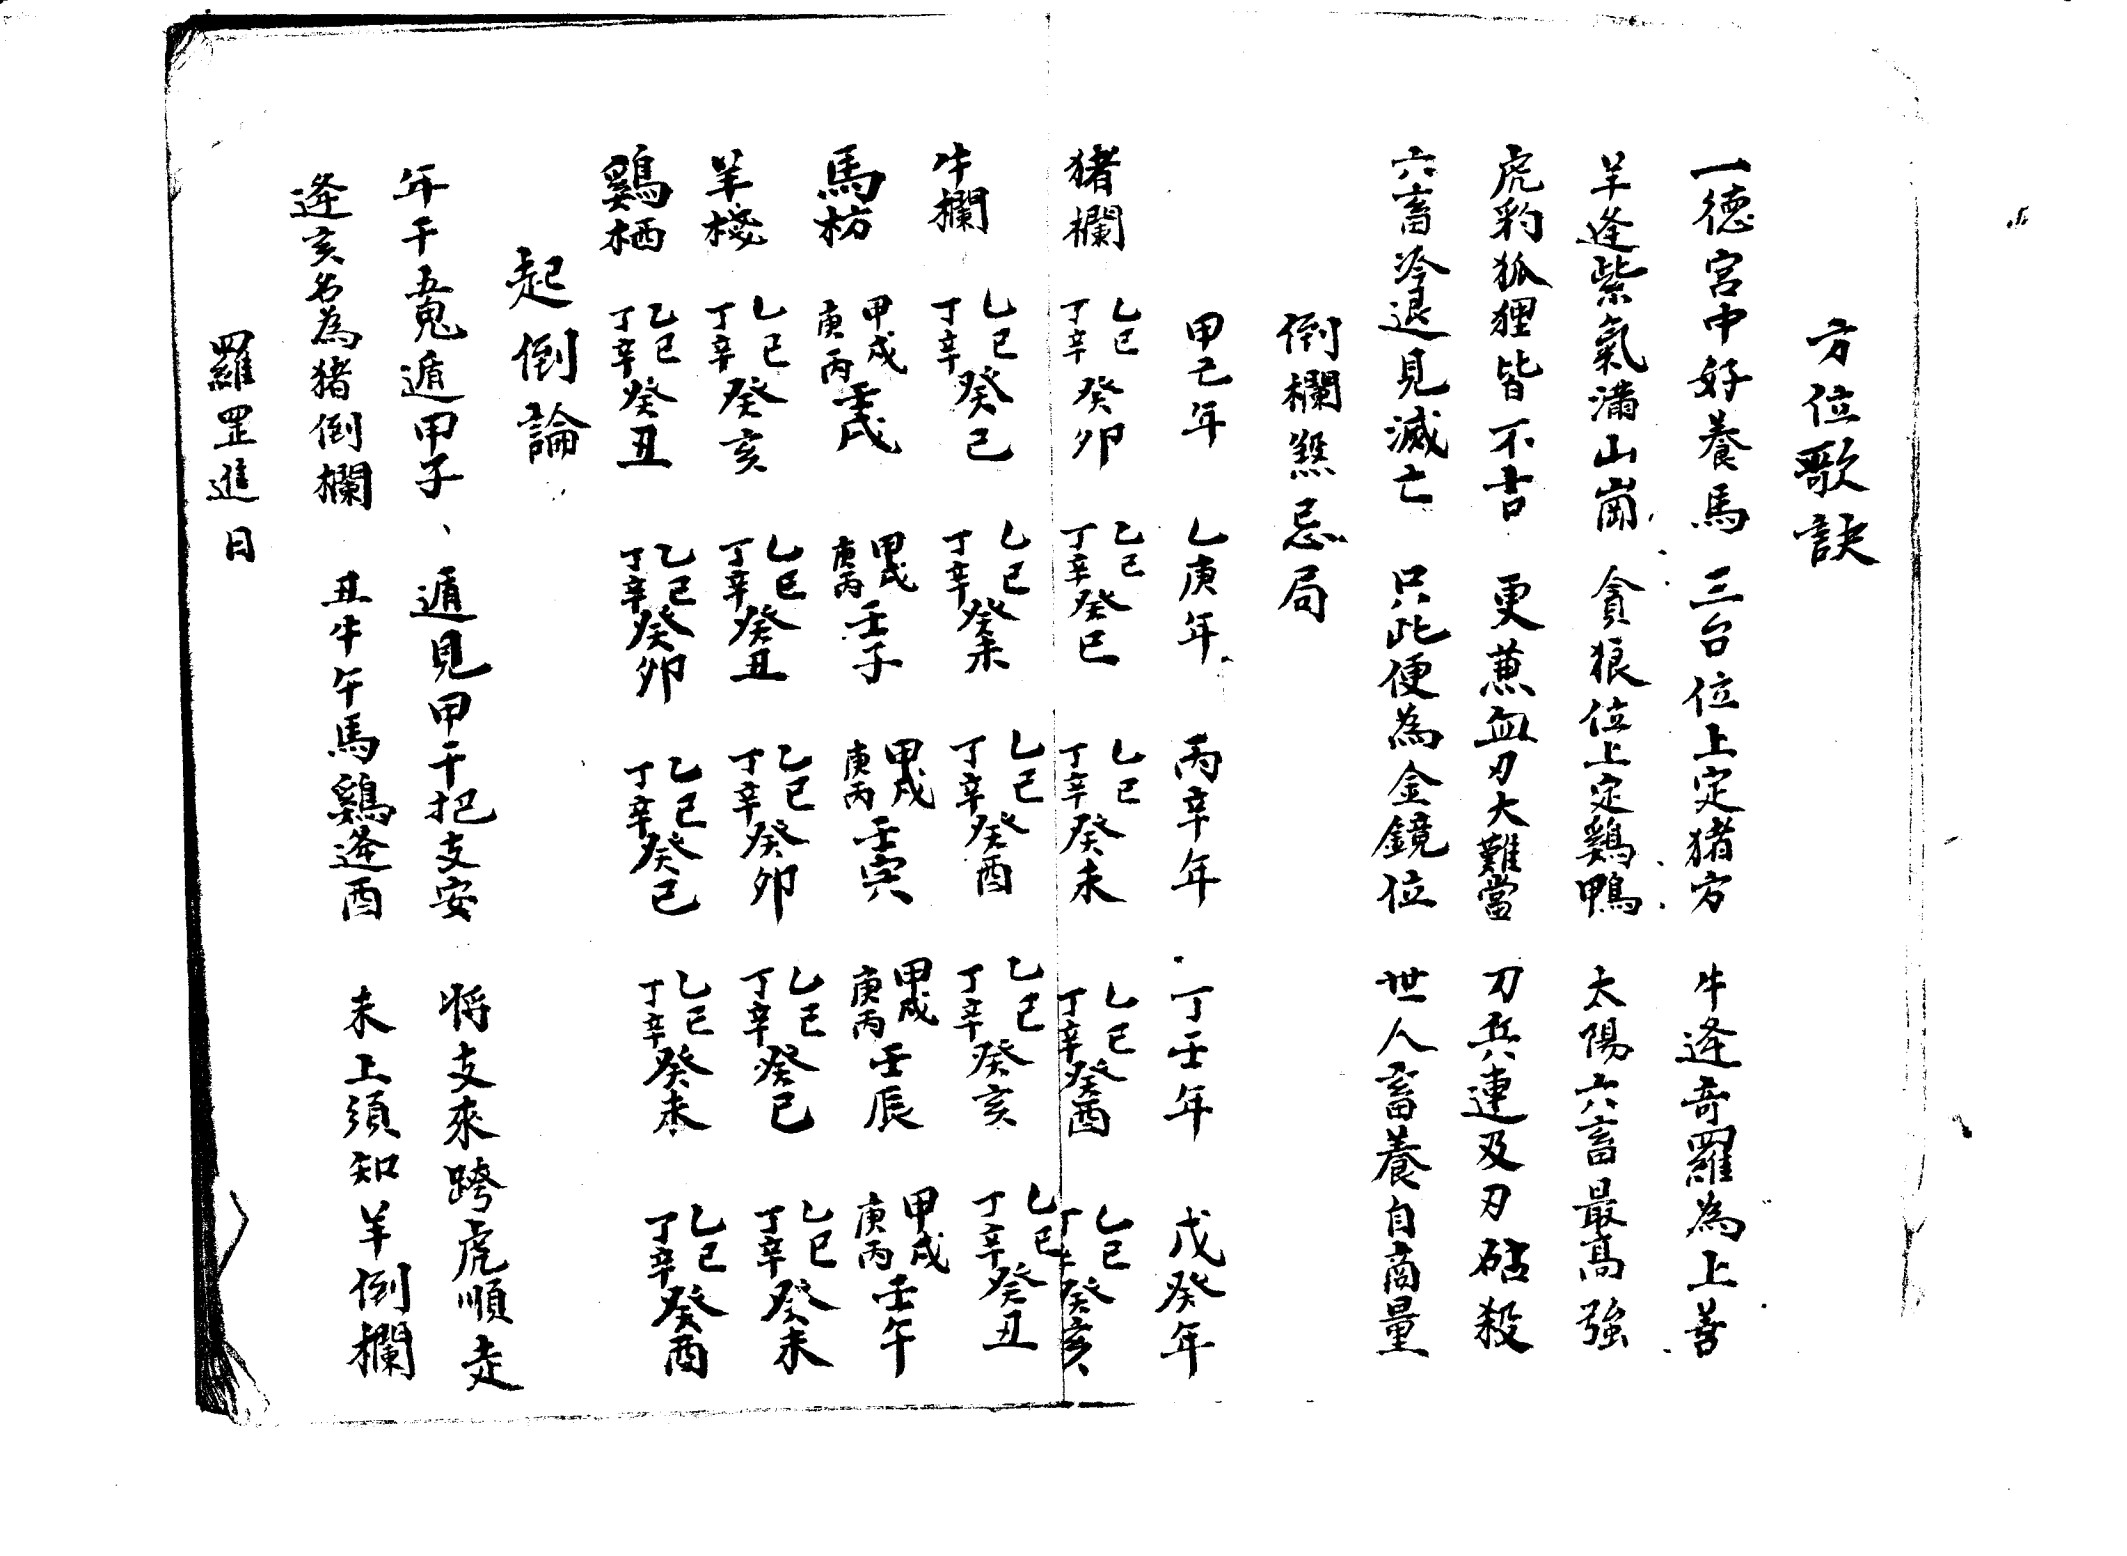 方位歌訣
一德宮中好養馬 三台位上定猪方 牛逢奇羅為上善
羊逢紫氣滿山崗 貪狼位上定鷄鴨 太陽六畜最高強
虎豹狐狸皆不吉 更蕙血刃大難當 刀兵連及刃砧殺
六畜冷退見滅亡 只此便為金鏡位 世人畜養自商量
倒欄煞忌局
甲己年 乙庚年 丙辛年 丁壬年 戊癸年
猪欄 乙己丁辛癸卯 乙己丁辛癸巳 乙己丁辛癸未 乙己丁辛癸酉 乙己丁辛癸亥
牛欄 乙己丁辛癸巳 乙己丁辛癸未 乙己丁辛癸酉 乙己丁辛癸亥 乙己丁辛癸丑
馬枋 甲戊庚丙壬戌 甲戊庚丙壬子 甲戊庚丙壬寅 甲戊庚丙壬辰 甲戊庚丙壬午
羊棧 乙己丁辛癸亥 乙己丁辛癸丑 乙己丁辛癸卯 乙己丁辛癸巳 乙己丁辛癸未
鷄栖 乙己丁辛癸丑 乙己丁辛癸卯 乙己丁辛癸巳 乙己丁辛癸未 乙己丁辛癸酉
起倒論
年干五鬼遁甲子、遁見甲干把支安 将支來跨虎順走
逢亥名為猪倒欄 丑牛午馬鷄逢酉 未上須知羊倒欄
羅罡進日